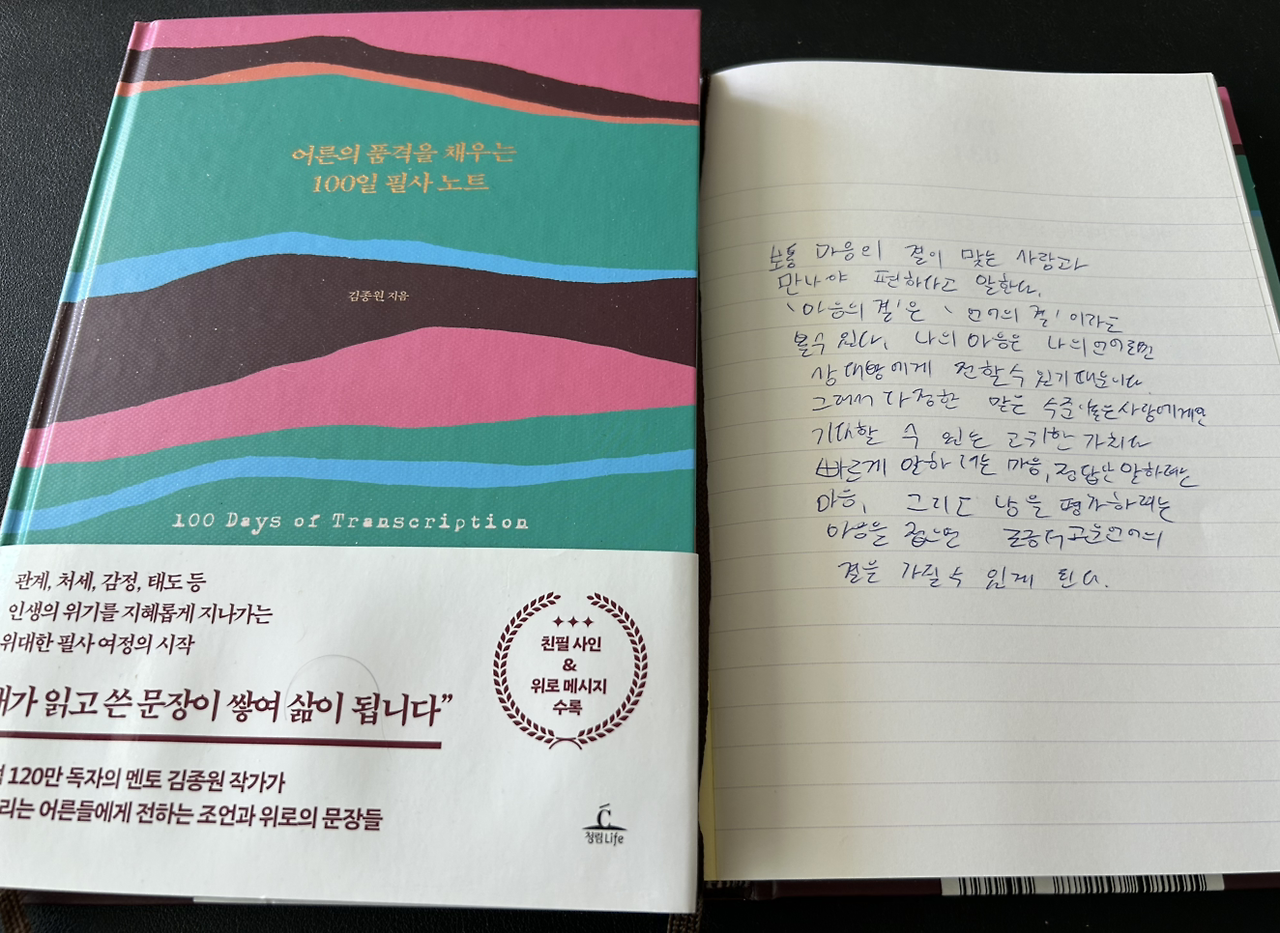 어른의 품격을 채우는
100일 필사 노트
김종원 지음
100 Days of Transcription
관계, 처세, 감정, 태도 등
인생의 위기를 지혜롭게 지나가는
위대한 필사 여정의 시작
읽고 쓴 문장이 쌓여 삶이 됩니다”
120만 독자의 멘토 김종원 작가가
어른들에게 전하는 조언과 위로의 문장들
친필 사인
&
위로 메시지
수록
청림Life
보통 마음의 결이 맞는 사람과
만나야 편하다고 말한다.
'마음의 결'은 '언어의 결'이라고
볼수 있다, 나의 마음은 나의 언어로만
상대방에게 전할수 있기 때문이다.
그래서 다정한 말은 수준 높은 사람에게만
기대할 수 있는 고귀한 가치다
빠르게 말하려는 마음, 정답만 말하려는
마음, 그리고 남을 평가하려는
마음을 접으면 고운 언어의
결을 가질 수 있게 된다.